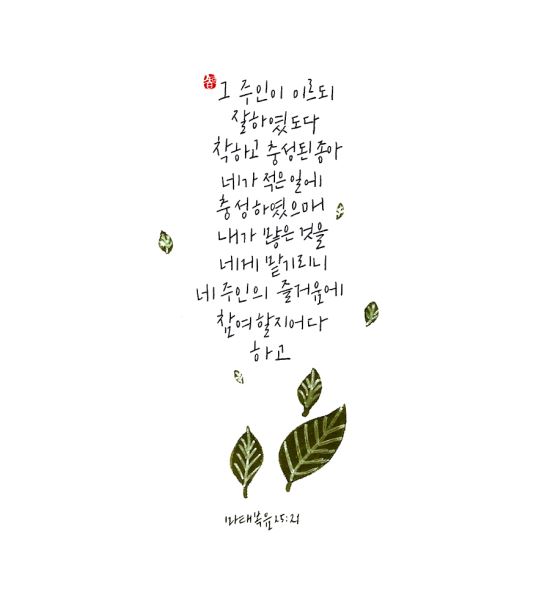 그 주인이 이르되
잘하였도다
착하고 충성된 종아
네가 적은 일에
충성하였으매
내가 많은 것을
네게 맡기리니
네 주인의 즐거움에
참여할지어다
하고
마태복음 25:21